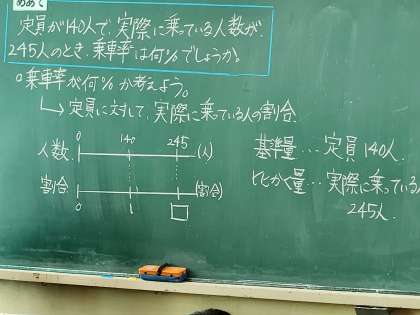 めあて
定員が140人で、実際に乗っている人数が、
245人のとき、乗車率は何%でしょうか。
○乗車率が何%か考えよう。
↳定員に対して、実際に乗っている人の割合.
0 140 245
人数 (人)
割合 (割合)
0 1 □
基準量…定員140人.
比かく量…実際に乗っている
245人.